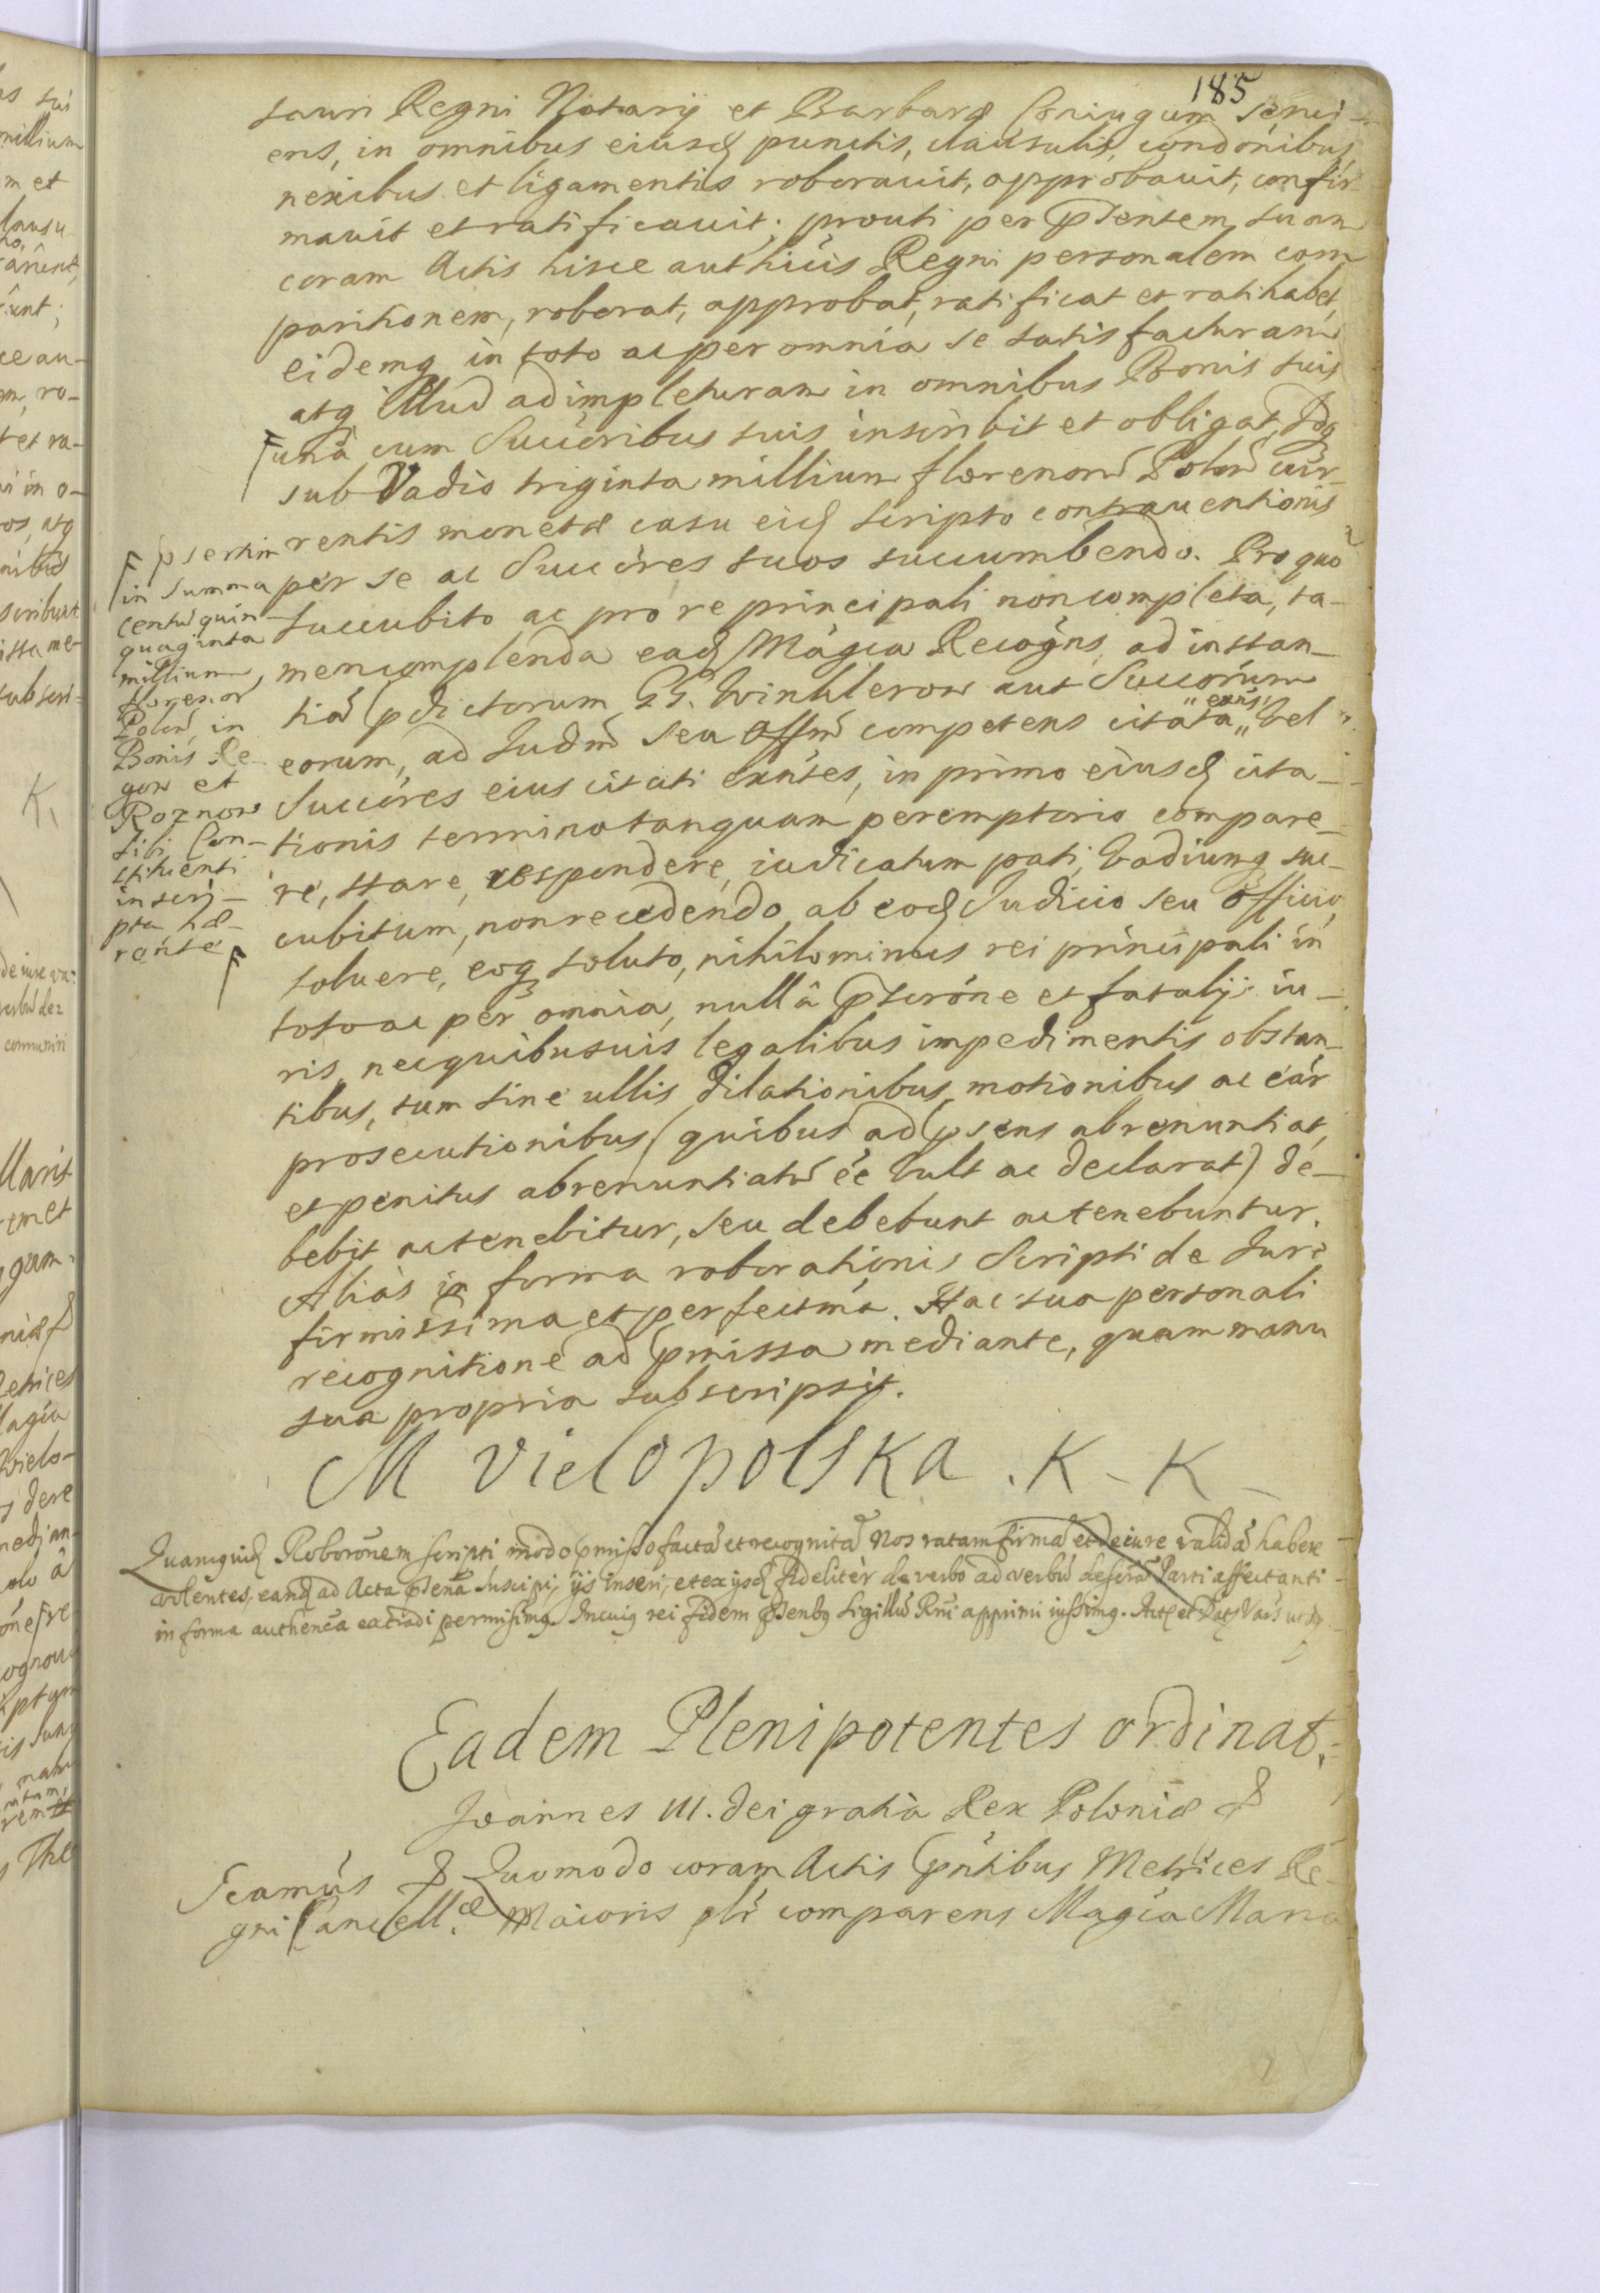 185
sauri Regni Notarÿ et Barbaræ Coniugum serui-
ens, in omnibus eiusd punctis, clausulis, condōnibus,
nexibus et ligamentis roborauit, approbauit, confir-
mauit et ratificauit; prouti per pūtentem suam
coram Actis hisce authicis Regni personalem com
paritionem, roborat, approbat, ratificat et ratihabet,
eidemq in toto ac per omnia se satisfacturam
atq illud adimpleturam in omnibus Bonis suis
unà cum Succoribus suis inscribit et obligat, Idq
sub Vadio triginta millium florenorū Polon cur-
rentis monetæ casu eid scripto contrauentionis
per se ac Succores suos succumbendo. Pro quo
succubito ac pro re principali non completa, ta-
men complenda ead Magca Recogns, ad instan-
tiā pdictorum GG. Winklerow aut Succorum
eorum, ad Judm seu Offm competens citata "exns" vel
Succores eius citati exntes, in primo eiusd cita-
tionis termino tanquam peremptorio compare-
re, stare, respondere, iudicatum pati, Vadiumq suc-
cubitum, non recedendo ab eod Judicio seu officio,
soluere, eoq soluto, nihilominus rei principali in
toto ac per omnia, nullâ pscrone et fatalÿs iu-
ris, nec quibusuis legalibus impedimentis obstan-
tibus, tum sine ullis dilationibus, motionibus ac ear
prosecutionibus (quibus ad psens abrenuntiat,
et penitus abrenuntiatū ee vult ac declarat) de-
bebit ac tenebitur, seu debebunt ac tenebuntur.
Alias in forma roborationis Scripti de Jure
firmissima et perfectma. Hac sua personali
recognitione ad pmissa mediante, quam manu
sua propria subscripsit.
F psertim
in summa
centū quin-
quaginta
millium
florenor
Polon, in
Bonis Re-
gow et
Roznow
sibi Con-
stituenti
inscri-
pta hæ-
rente F
M Vielopolska . K - K -
Quamquid Roboronem scripti modo pmisso factā et recognitā Nos ratam firmā et de iure validā habere
volentes, eand ad Acta pūtena suscipi, ijs inseri, et ex ijsd fideliter de verbo ad verbū Parti affectanti
in forma authenca extradi permisimq. In cuiq rei fidem pūtenbq sigillū Rni apprimi iussimq. Act et Dat Vars ut s
Eadem Plenipotentes ordinat.
Joannes III. Dei gratia Rex Poloniæ &
Scamus & Quomodo coram Actis pntibus Metrices Re-
gni Cancellæ Maioris plr comparens Magca Maria